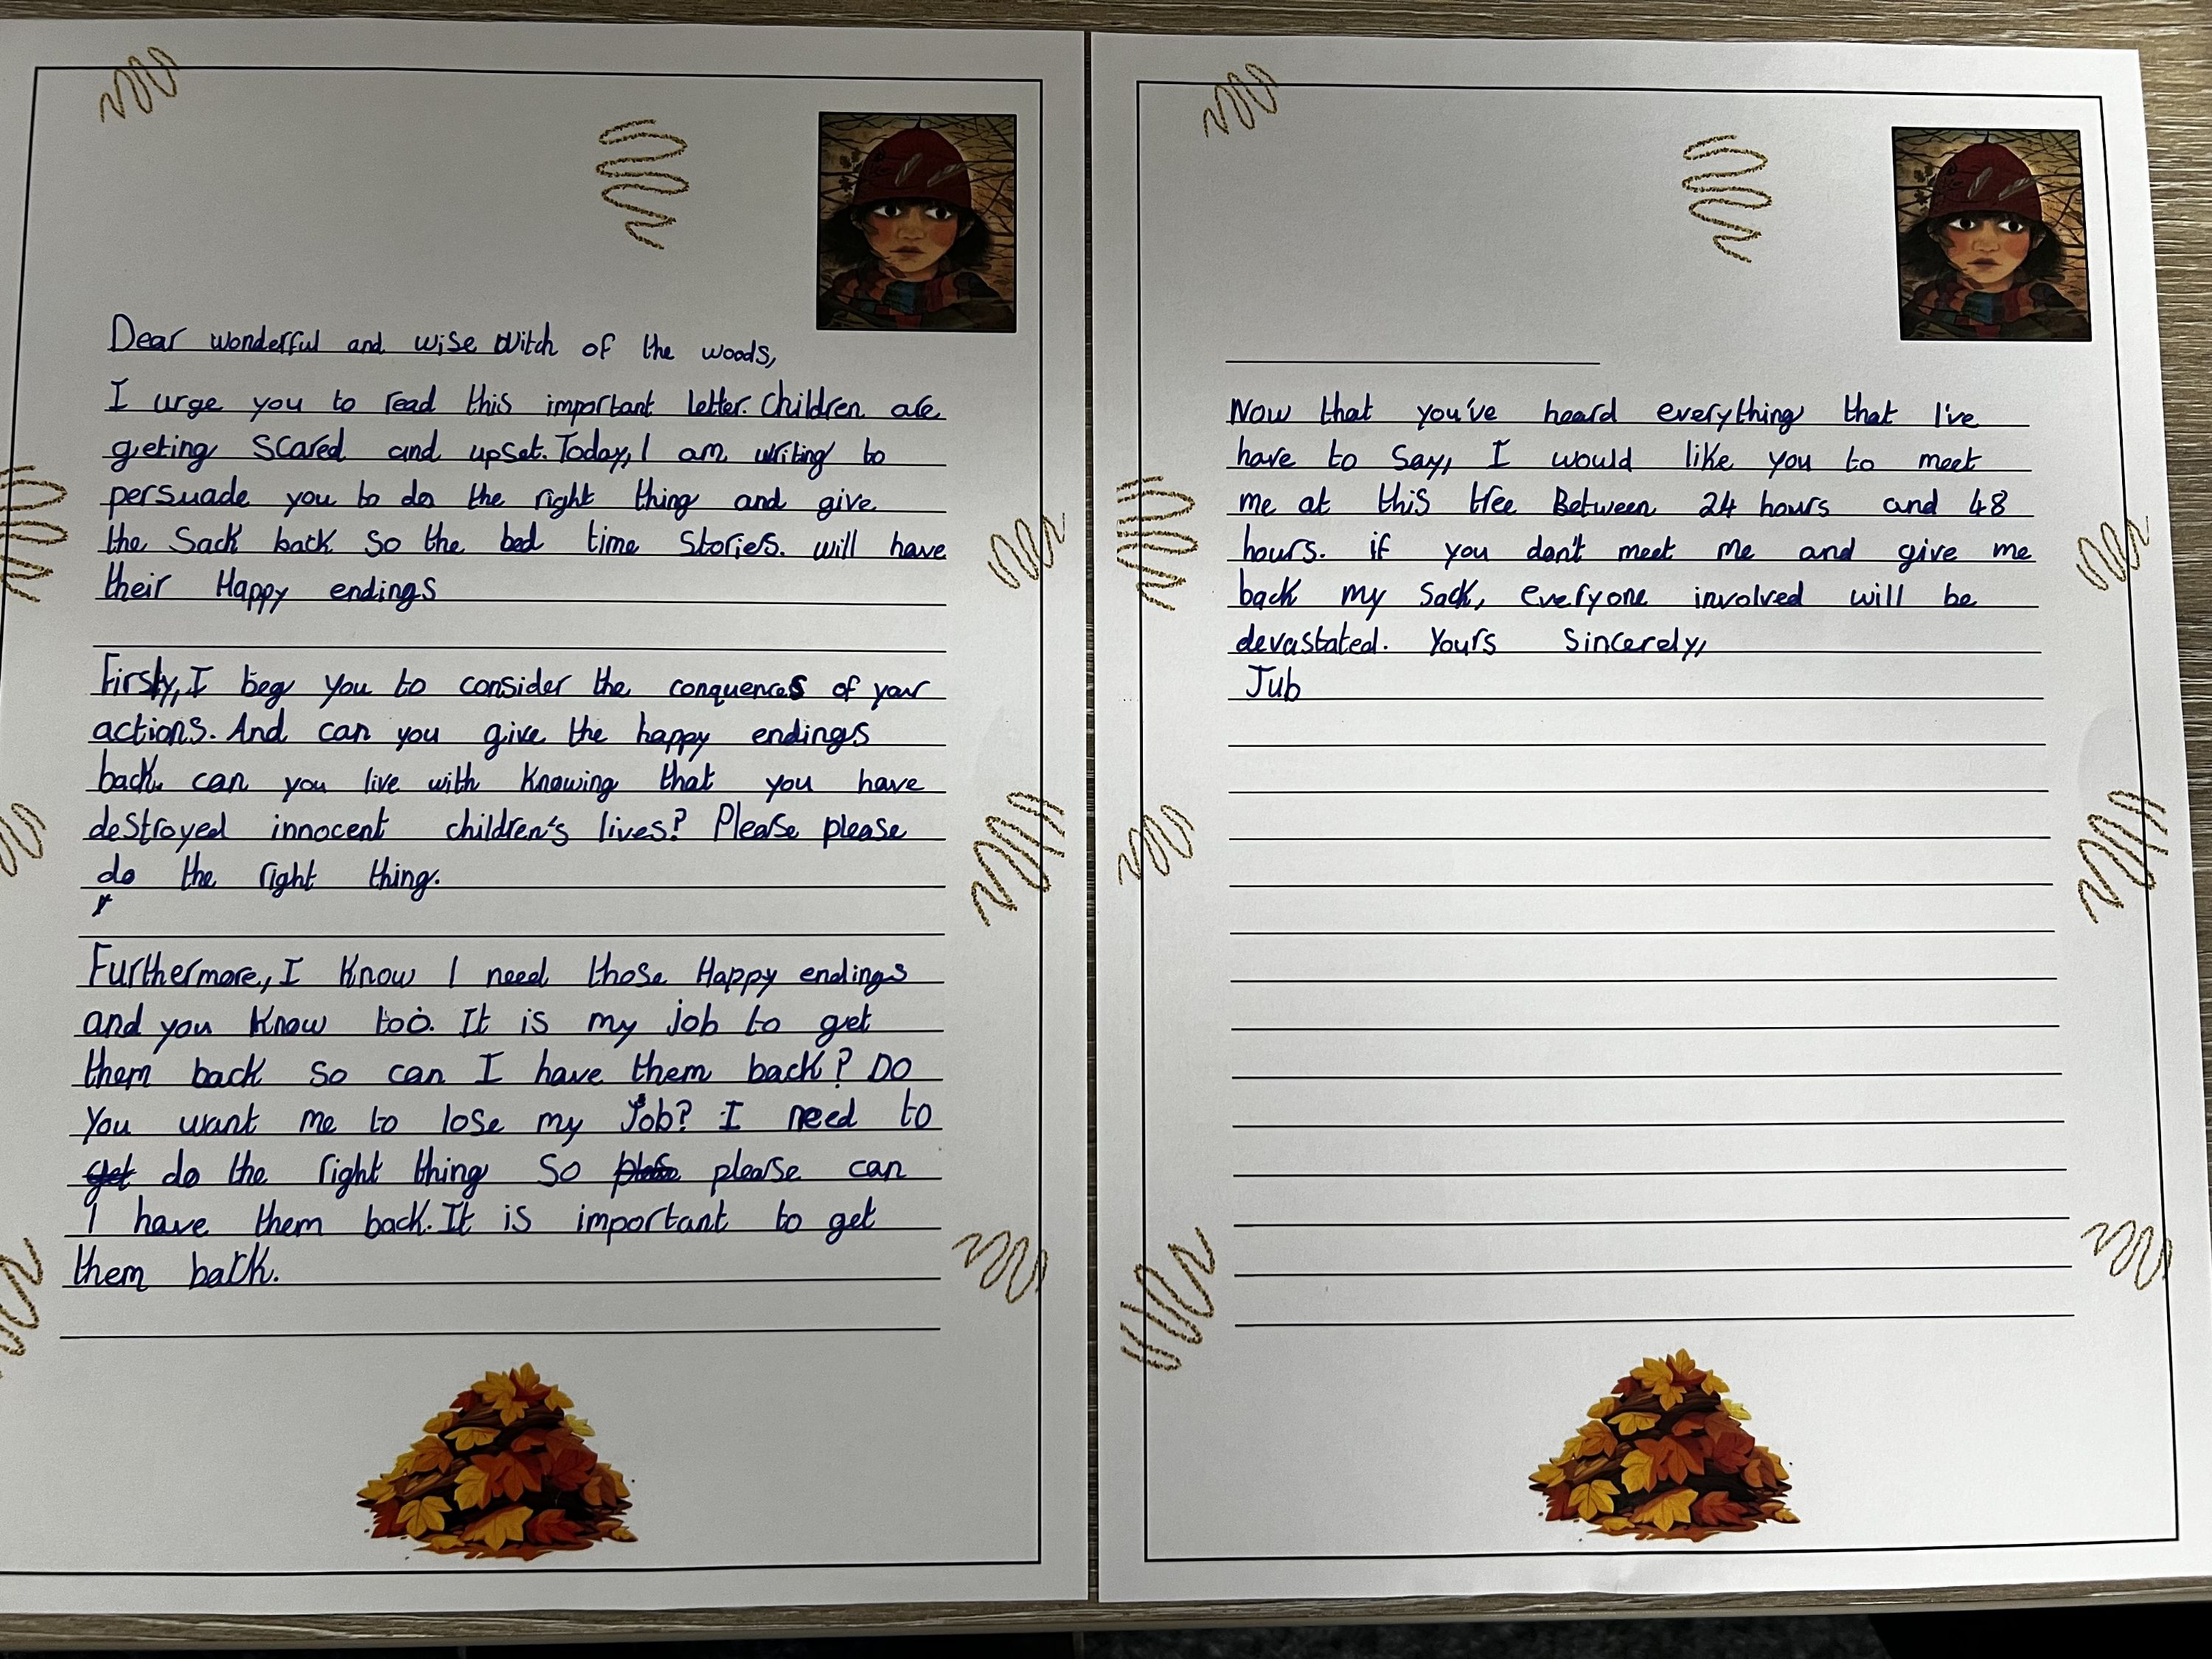 Dear wonderful and wise Witch of the woods,
I urge you to read this important letter. Children are
geting scared and upset. Today, I am writing to
persuade you to do the right thing and give
the sack back so the bed time stories. will have
their Happy endings
Firstly, I beg you to consider the conquences of your
actions. And can you give the happy endings
back. can you live with knowing that you have
destroyed innocent children's lives? Please please
do the right thing.
Furthermore, I know I need those Happy endings
and you know too. It is my job to get
them back so can I have them back? Do
you want me to lose my job? I need to
get do the right thing so please can
I have them back. It is important to get
them back.
Now that you've heard everything that I've
have to say, I would like you to meet
me at this tree Between 24 hours and 48
hours. if you don't meet me and give me
back my sack, everyone involved will be
devastated. Yours Sincerely,
Jub